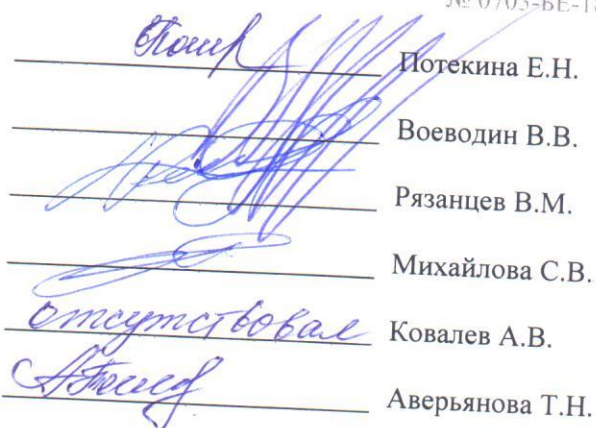 № 0703-ВЕ-18
Потекина Е.Н.
Воеводин В.В.
Рязанцев В.М.
Михайлова С.В.
отсутствовал Ковалев А.В.
Аверьянова Т.Н.